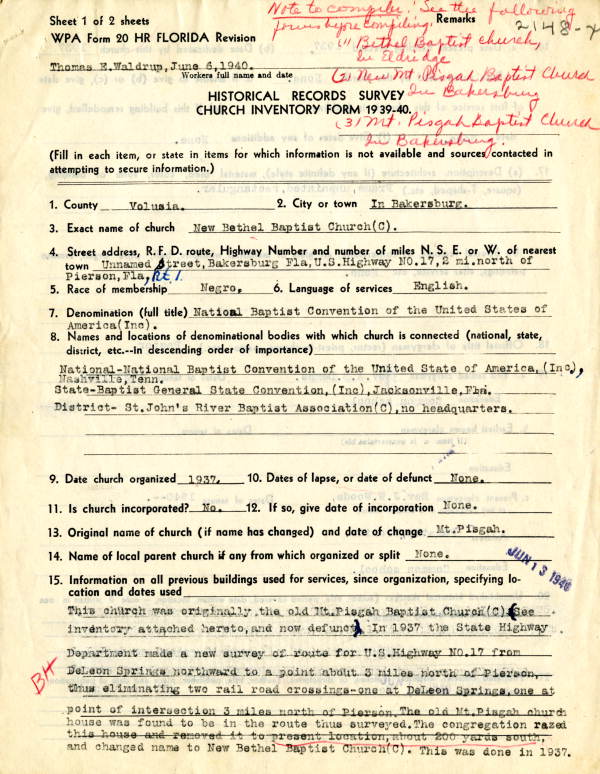 Sheet 1 of 2 sheets
WPA Form 20 HR FLORIDA Revision
Remarks
2148-
Note to compiler: See the following
forms before compiling.
(1) Bethel Baptist church,
in Eldridge
(2) New Mt. Pisgah Baptist Church
In Bakersburg
(3) Mt. Pisgah Baptist Church
In Bakersburg.
Thomas E.Waldrup,June 6,1940.
Workers full name and date
HISTORICAL RECORDS SURVEY
CHURCH INVENTORY FORM 1939-40.
(Fill in each item, or state in items for which information is not available and sources contacted in
attempting to secure information.)
1. County Volusia. 2. City or town In Bakersburg.
3. Exact name of church New Bethel Baptist Church(C).
4. Street address, R. F. D. route, Highway Number and number of miles N. S. E. or W. of nearest
town Unnamed Street,Bakersburg Fla,U.S.Highway NO.17,2 mi.north of
Pierson,Fla, Rt 1.
5. Race of membership Negro, 6. Language of services English.
7. Denomination (full title) National Baptist Convention of the United States of
America(Inc).
8. Names and locations of denominational bodies with which church is connected (national, state,
district, etc.--In descending order of importance)
National-National Baptist Convention of the United State of America,(Inc),
Nashville,Tenn.
State-Baptist General State Convention,(Inc),Jacksonville,Fla.
District- St.John's River Baptist Association(C),no headquarters.
9. Date church organized 1937. 10. Dates of lapse, or date of defunct None.
11. Is church incorporated? No. 12. If so, give date of incorporation None.
13. Original name of church (if name has changed) and date of change Mt.Pisgah.
14. Name of local parent church if any from which organized or split None.
JUN 13 1940
15. Information on all previous buildings used for services, since organization, specifying lo-
cation and dates used
This church was originally the old Mt.Pisgah Baptist Church(C) (See
inventory attached hereto,and now defunct). In 1937 the State Highway
Department made a new survey of route for U.S.Highway NO.17 from
DeLeon Springs northward to a point about 3 miles north of Pierson,
thus eliminating two rail road crossings-one at DeLeon Springs,one at
BH
point of intersection 3 miles north of Pierson,The old Mt.Pisgah church
house was found to be in the route thus surveyed.The congregation razed
this house and removed it to present location,about 200 yards south,
and changed name to New Bethel Baptist Church(C). This was done in 1937.